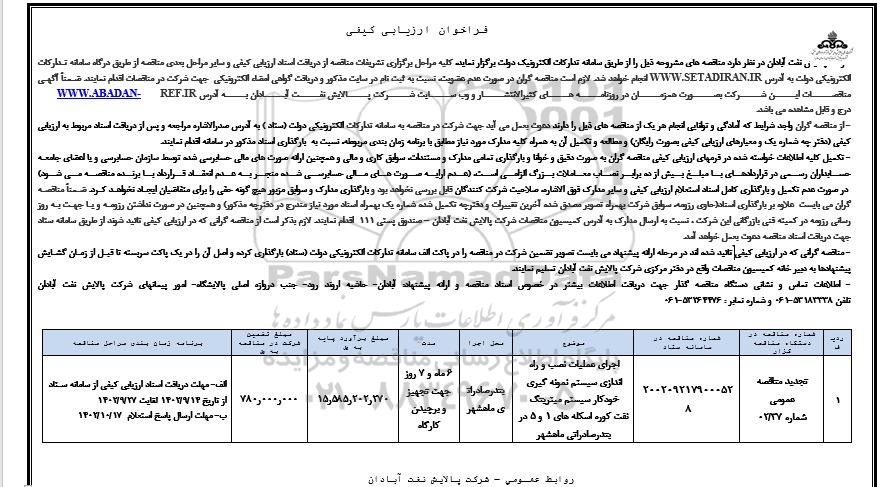 فراخوان ارزیابی کیفی
نفت آبادان در نظر دارد مناقصه های مشروحه ذیل را از طریق سامانه تدارکات الکترونیک دولت برگزار نماید. کلیه مراحل برگزاری تشریفات مناقصه از دریافت اسناد ارزیابی کیفی و سایر مراحل بعدی مناقصه از طریق درگاه سامانه تدارکات
الکترونیکی دولت به آدرس WWW.SETADIRAN.IR انجام خواهد شد. لازم است مناقصه گران در صورت عدم عضویت نسبت به ثبت نام در سایت مذکور و دریافت گواهی امضاء الکترونیکی جهت شرکت در مناقصات اقدام نمایند. ضمناً آگهی
مناقصات این شرکت بصورت همزمان در روزنامه های کثیرالانتشار و وب سایت شرکت پالایش نفت آبادان به آدرس WWW.ABADAN-REF.IR
درج و قابل مشاهده می باشد.
-از مناقصه گران واجد شرایط که آمادگی و توانایی انجام هر یک از مناقصه های ذیل را دارند دعوت بعمل می آید جهت شرکت در مناقصه به سامانه تدارکات الکترونیکی دولت (ستاد) به آدرس صدرالاشاره مراجعه و پس از دریافت اسناد مربوط به ارزیابی
کیفی (دفترچه شماره یک و معیارهای ارزیابی کیفی بصورت رایگان) و مطالعه و تکمیل آن به همراه کلیه مدارک مورد نیاز مطابق با برنامه زمان بندی مربوطه، نسبت به بارگذاری اسناد مذکور در سامانه اقدام نمایند.
- تکمیل کلیه اطلاعات خواسته شده در فرمهای ارزیابی کیفی مناقصه گران به صورت دقیق و خوانا و بارگذاری تمامی مدارک و مستندات، سوابق کاری و مالی و همچنین ارائه صورت های مالی حسابرسی شده توسط سازمان حسابرسی و یا اعضای جامعه
حسابداران رسمی در قراردادهای با مبلغ بیش از ده برابر نصاب معاملات بزرگ الزامی است. (عدم ارایه صورت های مالی حسابرسی شده منجر به عدم انعقاد قرارداد با برنده مناقصه می شود)
در صورت عدم تکمیل و بارگذاری کامل اسناد استعلام ارزیابی کیفی و سایر مدارک فوق الاشاره، صلاحیت شرکت کنندگان قابل بررسی نخواهد بود و بارگذاری مدارک و سوابق مزبور هیچ گونه حقی را برای متقاضیان ایجاد نخواهد کرد. ضمناً مناقصه
گران می بایست علاوه بر بارگذاری اسناد(حاوی رزومه، سوابق شرکت بهمراه تصویر مصدق شده آخرین تغییرات و دفترچه تکمیل شده شماره یک بهمراه اسناد مورد نیاز مندرج در دفترچه مذکور) و همچنین در صورت نداشتن رزومه و یا جهت به روز
رسانی رزومه در کمیته فنی بازرگانی این شرکت، نسبت به ارسال مدارک به آدرس کمیسیون مناقصات شرکت پالایش نفت آبادان –صندوق پستی ۱۱۱ اقدام نمایند. لازم بذکر است از مناقصه گرانی که در ارزیابی کیفی تائید شوند از طریق سامانه ستاد
جهت دریافت اسناد مناقصه دعوت بعمل خواهد آمد.
- مناقصه گرانی که در ارزیابی کیفی تائید شده اند در مرحله ارائه پیشنهاد می بایست تصویر تضمین شرکت در مناقصه را در پاکت الف سامانه تدارکات الکترونیکی دولت (ستاد) بارگذاری کرده و اصل آن را در یک پاکت سربسته تا قبل از زمان گشایش
پیشنهادها به دبیر خانه کمیسیون مناقصات واقع در دفتر مرکزی شرکت پالایش نفت آبادان تسلیم نمایند.
- اطلاعات تماس و نشانی دستگاه مناقصه گذار جهت دریافت اطلاعات بیشتر در خصوص اسناد مناقصه و ارائه پیشنهاد آبادان- حاشیه اروند رود- جنب دروازه اصلی پالایشگاه- امور پیمانهای شرکت پالایش نفت آبادان
تلفن ۵۳۱۸۲۳۳۸-۰۶۱ و شماره نمابر : ۵۳۲۶۴۴۷۶-۰۶۱
ردیف | شماره مناقصه در دستگاه مناقصه گزار | شماره مناقصه در سامانه ستاد | موضوع | محل اجرا | مدت | مبلغ برآورد پایه به ریال | مبلغ تضمین شرکت در مناقصه به ریال | برنامه زمان بندی مراحل مناقصه
۱ | تجدید مناقصه عمومی شماره ۰۲/۳۷ | ۲۰۰۲۰۹۲۱۷۹۰۰۰۵۲۸ | اجرای عملیات نصب و راه اندازی سیستم نمونه گیری خودکار سیستم میترینگ نفت کوره اسکله های ۱ و ۵ در بندرصادراتی ماهشهر | بندرصادراتی ماهشهر | ۶ ماه و ۷ روز جهت تجهیز و برچیدن کارگاه | ۱۵,۵۸۵,۲۰۲,۲۷۰ | ۷۸۰,۰۰۰,۰۰۰ | الف-مهلت دریافت اسناد ارزیابی کیفی از سامانه ستاد از تاریخ ۱۴۰۲/۹/۱۴ لغایت ۱۴۰۲/۹/۲۷ ب-مهلت ارسال پاسخ استعلام ۱۴۰۲/۱۰/۱۷
روابط عمومی – شرکت پالایش نفت آبادان
ParsNamadData
مرکز فرآوری اطلاعات پارس نماد داده ها
پایگاه اطلاع رسانی مناقصه و مزایده
۰۲۱-۸۸۳۴۹۶۷۰